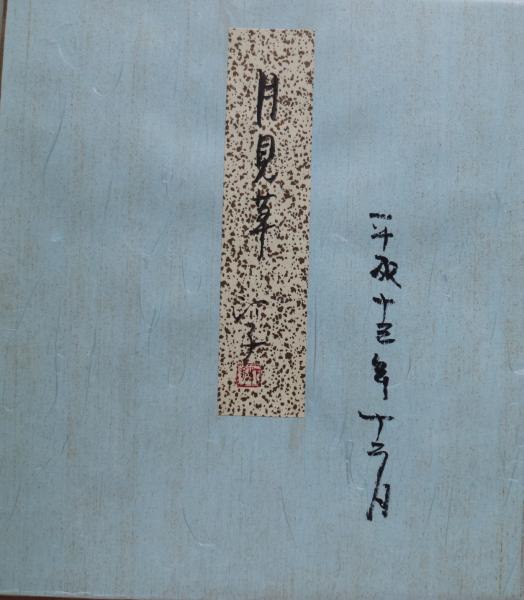 平成十三年十二月
月見草